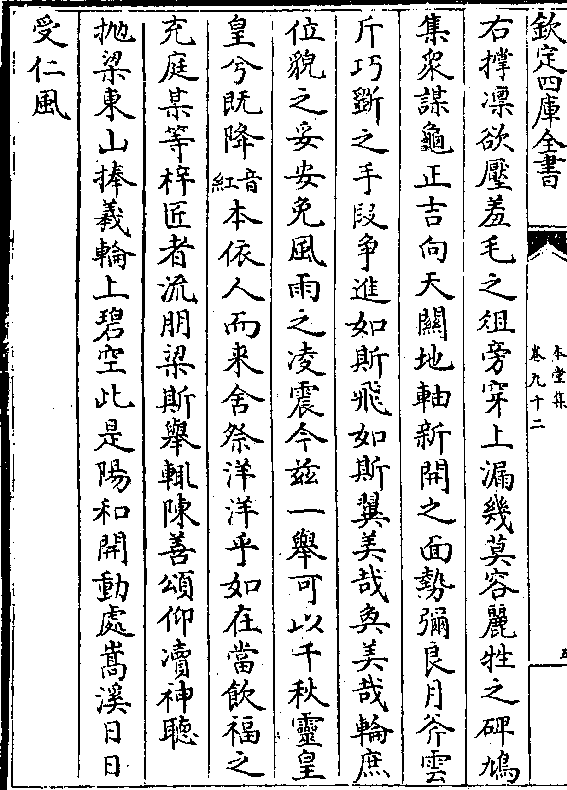 欽定四庫全書
本堂集
卷九十二
右撑凛欲壓羞毛之俎旁穿上漏幾莫容麗牲之碑鳩
集衆謀龜正吉向天關地軸新開之面勢彌良月斧雲
斤巧斵之手段争進如斯飛如斯翼美哉奐美哉輪庶
位貌之妥安免風雨之凌震今兹一舉可以千秋靈皇
皇兮既降音紅本依人而来舍祭洋洋乎如在當飲福之
充庭某等梓匠者流朋梁斯舉輒陳善頌仰凟神聽
抛梁東山捧羲輪上碧空此是陽和開動處嵩溪日日
受仁風